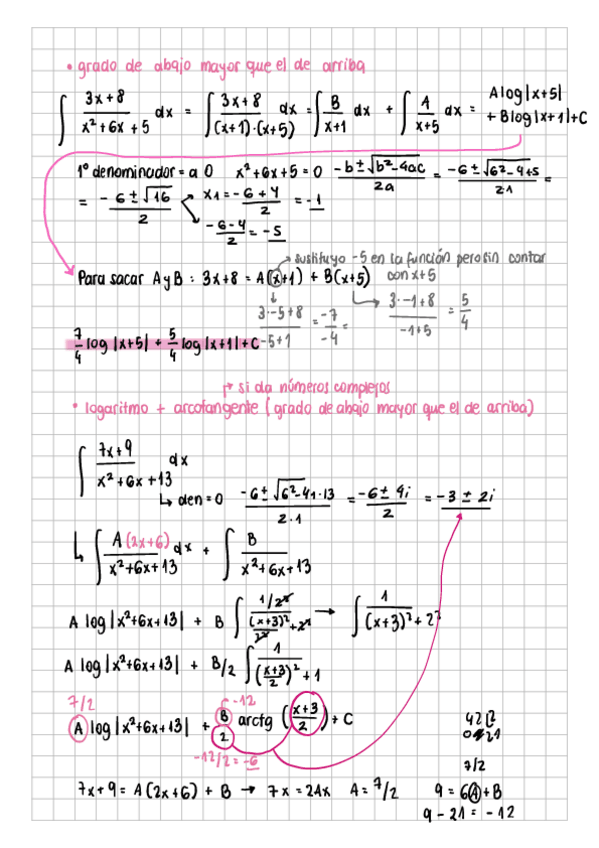 • grado de abajo mayor que el de arriba
∫ (3x+8)/(x²+6x+5) dx = ∫ (3x+8)/((x+1)·(x+5)) dx = ∫ B/(x+1) dx + ∫ A/(x+5) dx = A log|x+5| + B log|x+1| + C
1º denominador = a 0 x²+6x+5=0 (-b±√(b²-4ac))/(2a) = (-6±√(6²-4·5))/(2·1) =
= (-6±√16)/2 x1 = (-6+4)/2 = -1
(-6-4)/2 = -5
sustituyo -5 en la función pero sin contar con x+5
Para sacar A y B : 3x+8 = A(x+1) + B(x+5)
(3·-5+8)/(-5+1) = (-7)/(-4) = (3·-1+8)/(-1+5) = 5/4
7/4 log|x+5| + 5/4 log|x+1| + C
si da números complejos
• logaritmo + arcotangente (grado de abajo mayor que el de arriba)
∫ (7x+9)/(x²+6x+13) dx
↳ den=0 (-6±√(6²-4·1·13))/(2·1) = (-6±4i)/2 = -3±2i
↳ ∫ A(2x+6)/(x²+6x+13) dx + ∫ B/(x²+6x+13)
A log|x²+6x+13| + B ∫ (1/2²)/((x+3)²/2² + 2²/2²) → ∫ 1/((x+3)²+2²)
A log|x²+6x+13| + B/2 ∫ 1/(((x+3)/2)²+1)
7/2 -12
A log|x²+6x+13| + B/2 arctg ((x+3)/2) + C
-12/2 = -6
42 |2
0 21
7/2
7x+9 = A(2x+6) + B → 7x = 2Ax A = 7/2 9 = 6A + B
9 - 21 = -12